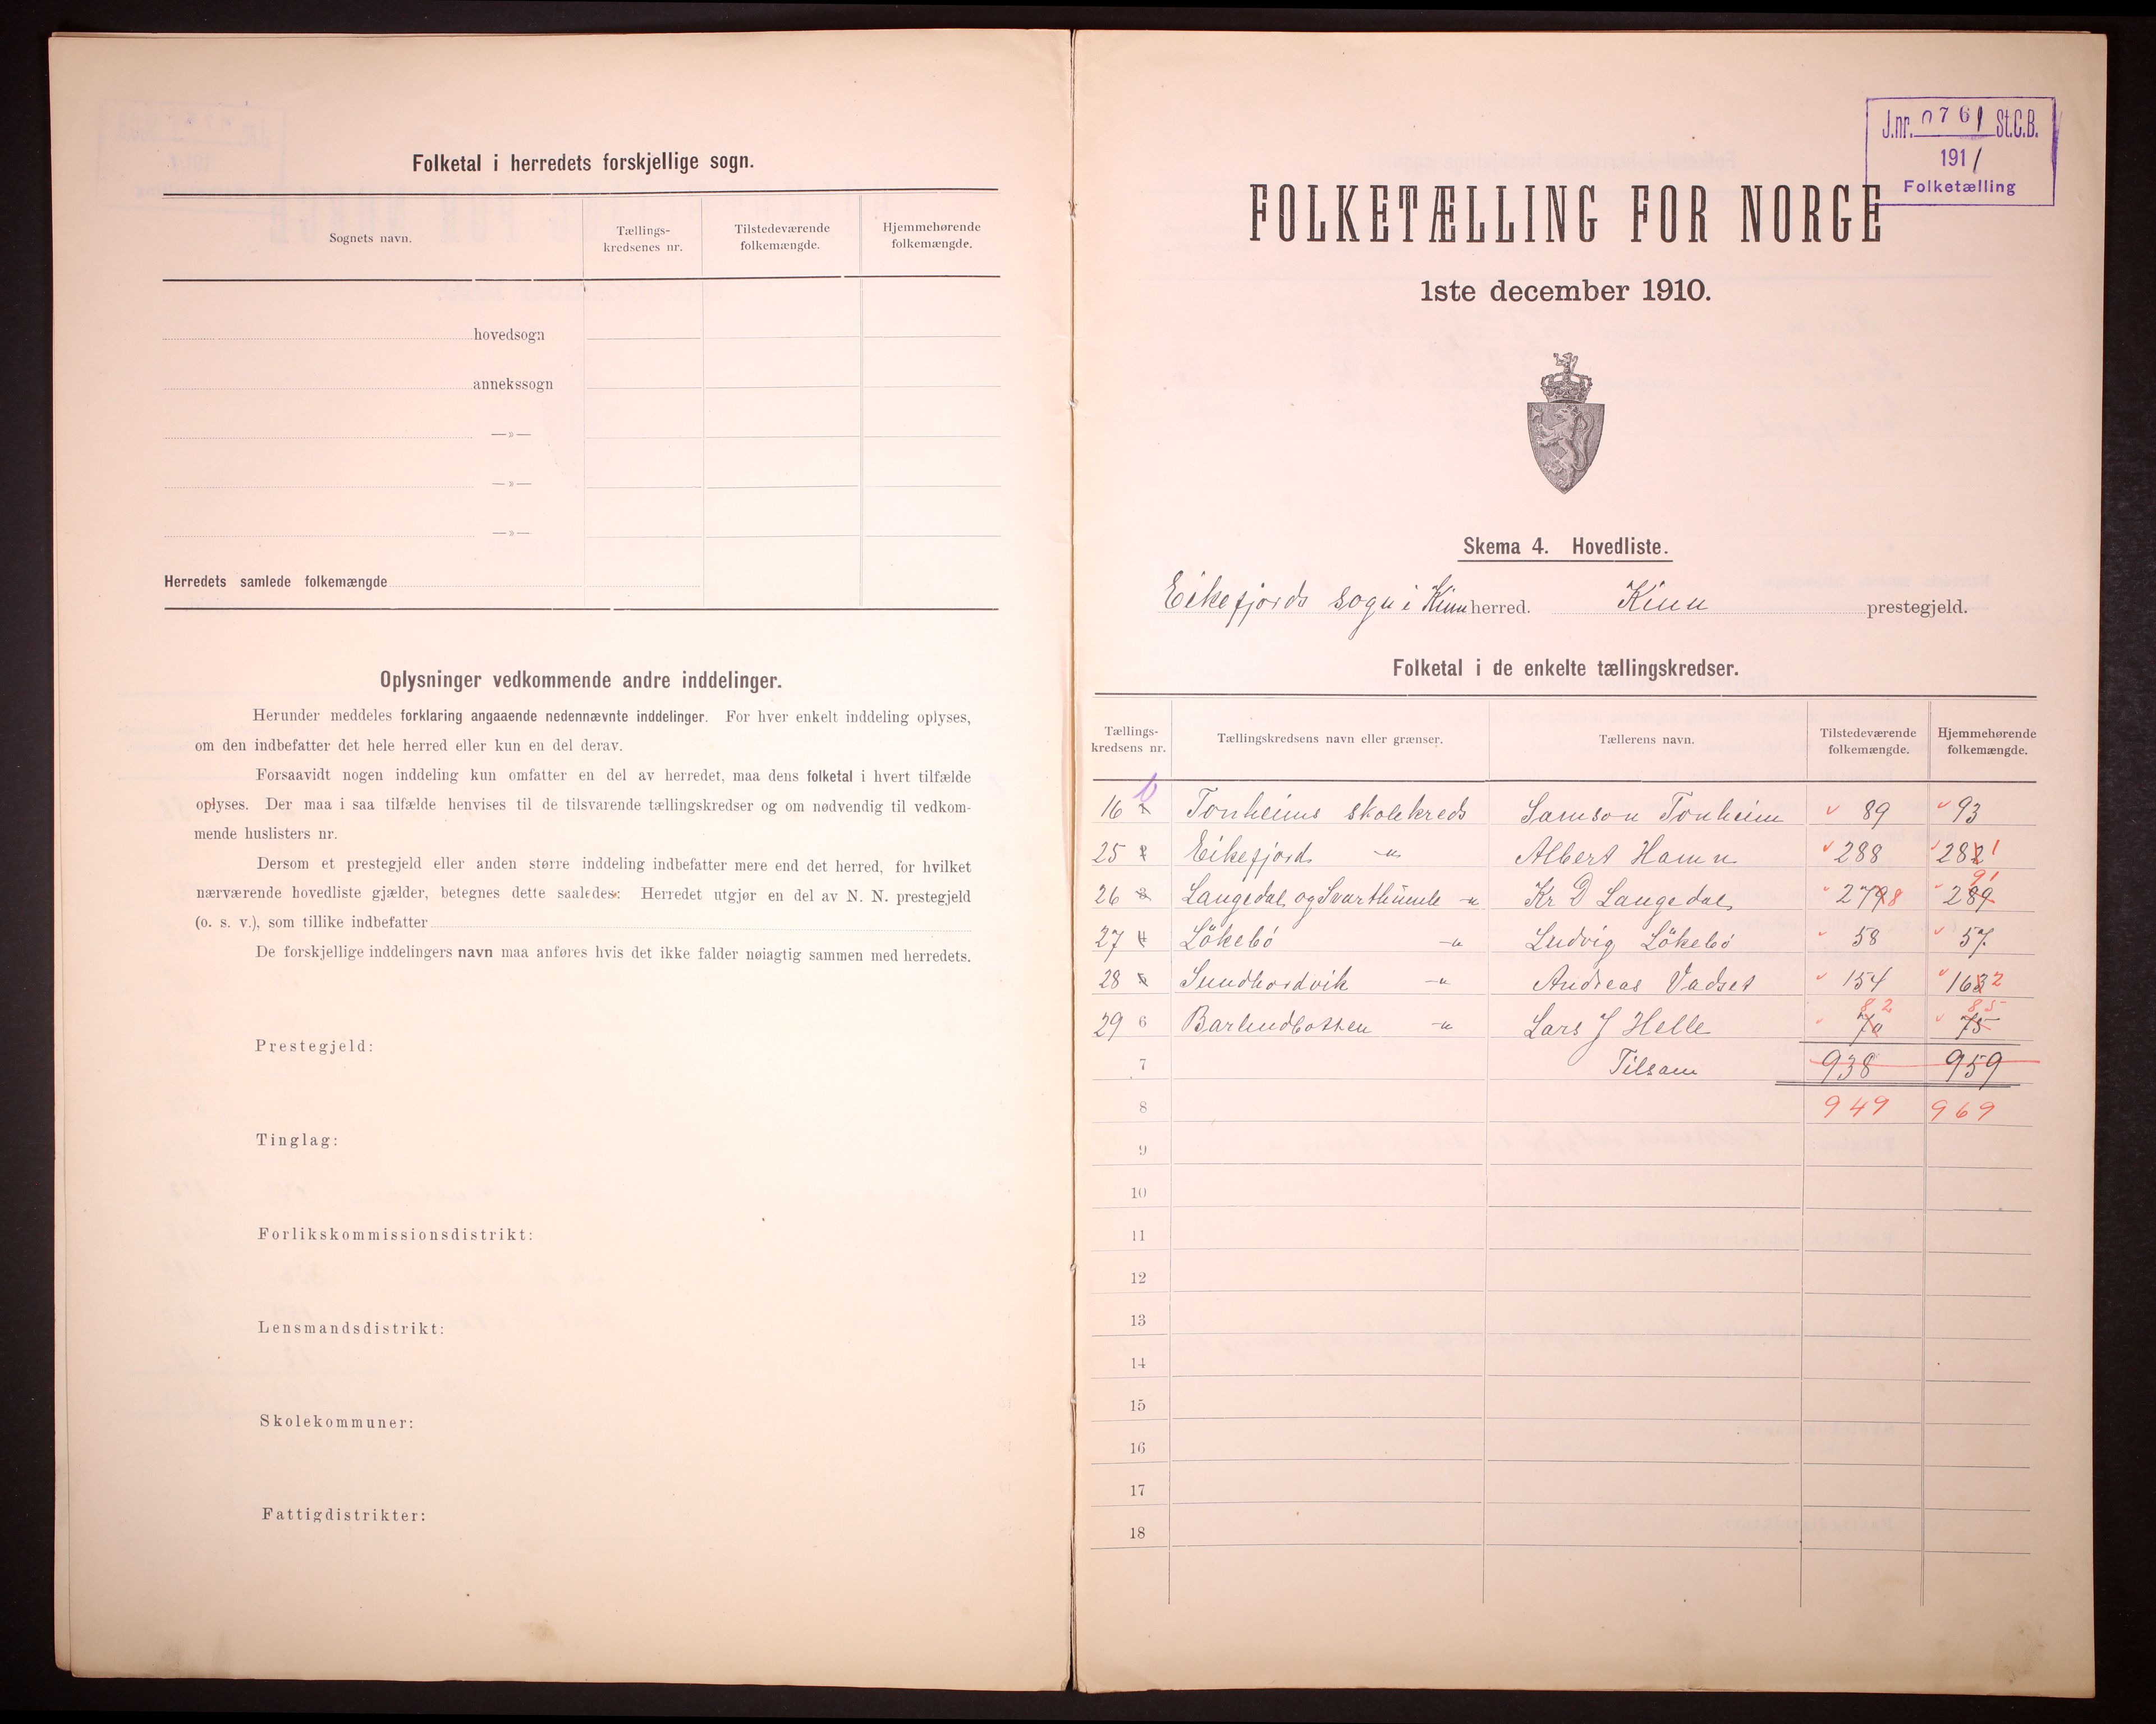 Folketal i herredets forskjellige sogn.
Sognets navn.
Tællings-
kredsenes nr.
Tilstedeværende
folkemængde.
Hjemmehørende
folkemængde.
hovedsogn
annekssogn
—»—
—»—
—»—
Herredets samlede folkemængde
Oplysninger vedkommende andre inddelinger.
Herunder meddeles forklaring angaaende nedennævnte inddelinger. For hver enkelt inddeling oplyses,
om den indbefatter det hele herred eller kun en del derav.
Forsaavidt nogen inddeling kun omfatter en del av herredet, maa dens folketal i hvert tilfælde
oplyses. Der maa i saa tilfælde henvises til de tilsvarende tællingskredser og om nødvendig til vedkom-
mende huslisters nr.
Dersom et prestegjeld eller anden større inddeling indbefatter mere end det herred, for hvilket
nærværende hovedliste gjælder, betegnes dette saaledes: Herredet utgjør en del av N. N. prestegjeld
(o. s. v.), som tillike indbefatter
De forskjellige inddelingers navn maa anføres hvis det ikke falder nøiagtig sammen med herredets.
Prestegjeld:
Tinglag:
Forlikskommissionsdistrikt:
Lensmandsdistrikt:
Skolekommuner:
Fattigdistrikter:
J.nr. 0761 St.C.B.
1911
Folketælling
FOLKETÆLLING FOR NORGE
1ste december 1910.
Skema 4. Hovedliste.
Eikefjords sogn i Kinn herred. Kinn prestegjeld.
Folketal i de enkelte tællingskredser.
Tællings-
kredsens nr.
Tællingskredsens navn eller grænser.
Tællerens navn.
Tilstedeværende
folkemængde.
Hjemmehørende
folkemængde.
16 b 1 Tonheims skolekreds Samson Tonheim 89 93
25 2 Eikefjords —"— Albert Hamn 288 282 1
26 3 Langedal og Svarthumle —"— Kr D Langedal 279 8 289 91
27 4 Lökebö —"— Ludvig Lökebö 58 57
28 5 Sundhordvik —"— Andreas Vadset 154 163 2
29 6 Barlindbotten —"— Lars J Helle 70 82 75 85
7 Tilsam 938 959
8 949 969
9
10
11
12
13
14
15
16
17
18